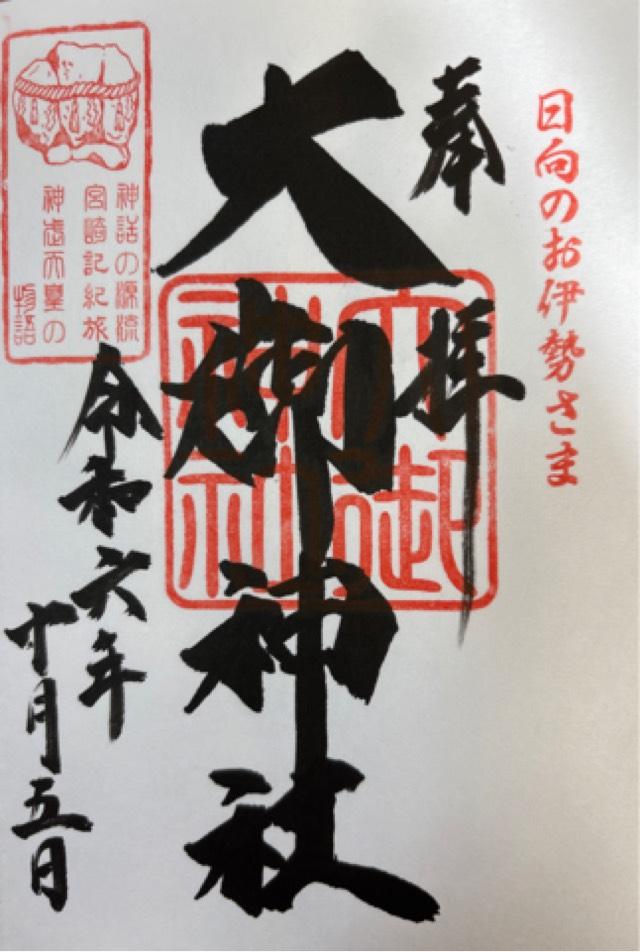 日向のお伊勢さま
奉拝
大御神社
大御
神社
神話の源流
宮崎記紀旅
神武天皇の
物語
令和六年
十月五日